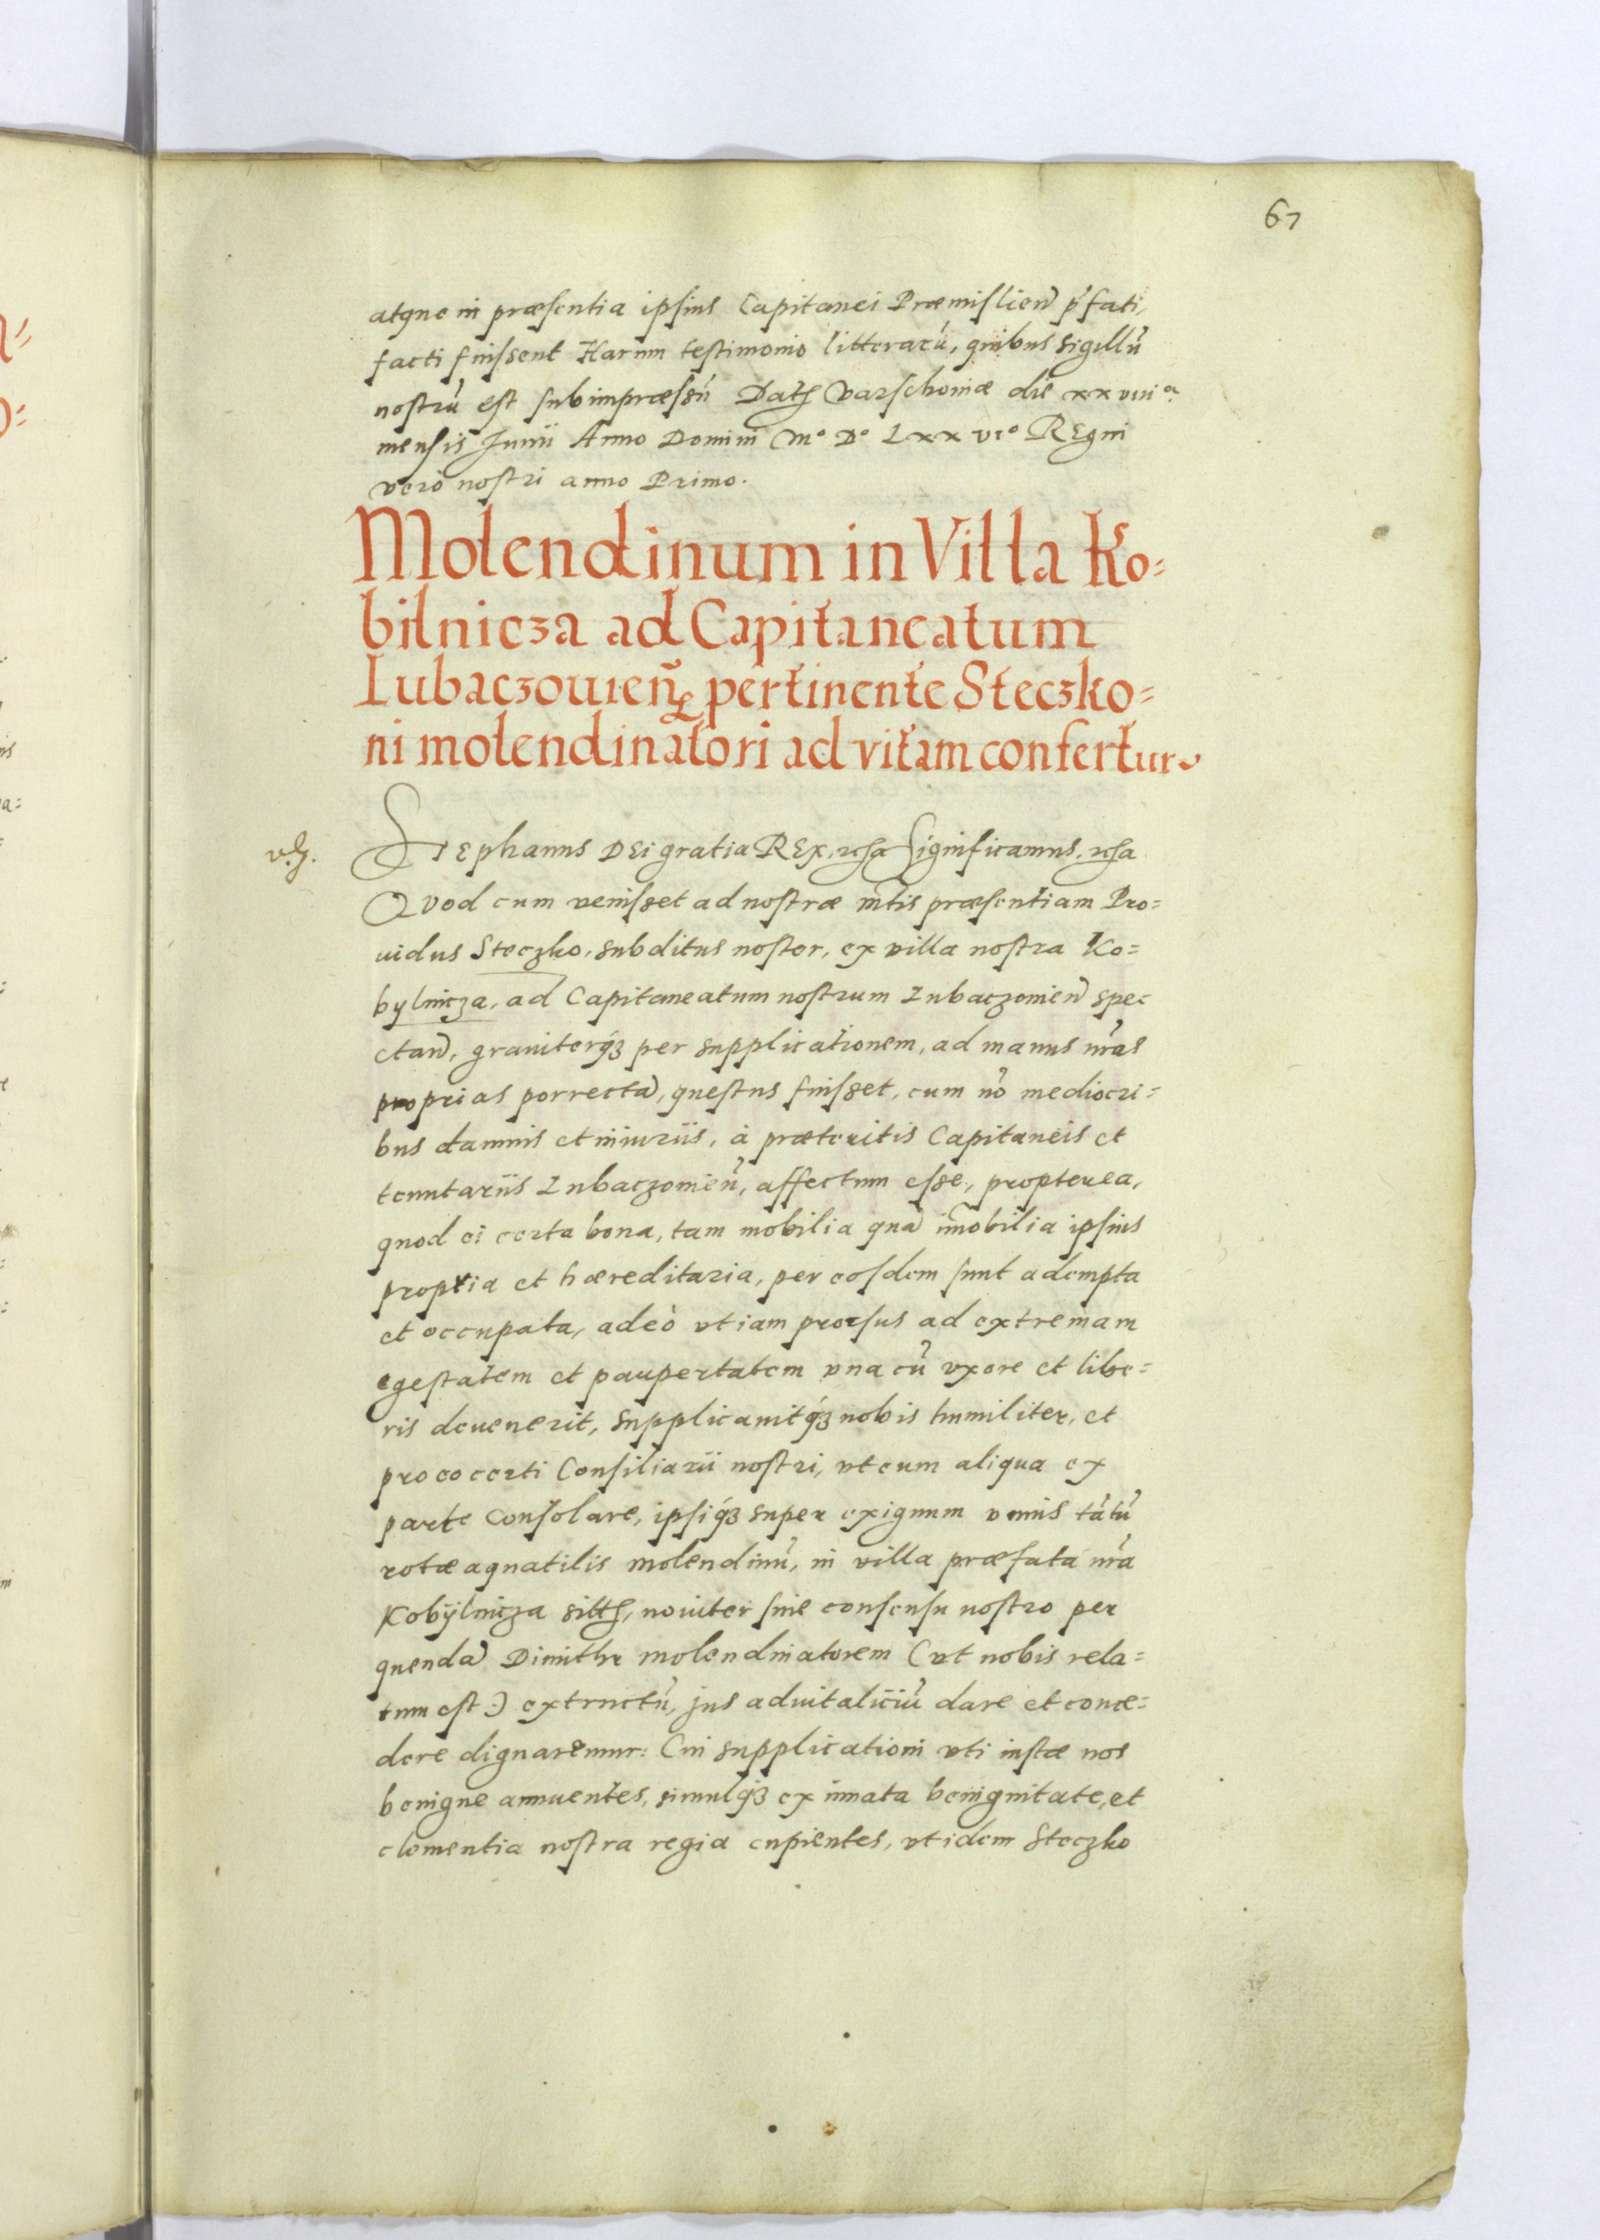 67
atque in præsentia ipsius Capitanei Præmislień p̃fati,
facti fuissent Harum testimonio litterarũ, quibus sigillũ
nostrũ est subimpræssũ Datꝭ Varschoviæ die xxviiiª
mensis Junii Anno Domini Mº Dº Lxxviº REgni
vero nostri anno Primo.
Molendinum in Villa Ko=
bilnicza ad Capitaneatum
Lubaczovieñ pertinente Steczko=
ni molendinatori ad vitam confertur.
STEphanus DEi gratia REx, Significamus,
Qvod cum venisset ad nostræ mtis præsentiam Pro=
uidus Steczko, subditus noster, ex villa nostra Ko=
bylnicza, ad Capitaneatum nostrum Lubaczouień spe=
ctań, grauiterqꝫ per supplicationem, ad manus nr̃as
proprias porrectã, questus fuisset, cum nõ mediocri=
bus damnis et iniuriis, à præteritis Capitaneis et
tenutariis Lubaczouieñ, affectum esse, propterea,
quod ei certa bona, tam mobilia quã im̃obilia ipsius
propria et hæreditaria, per eosdem sunt adempta
et occupata, adeò vt iam prorsus ad extremam
egestatem et paupertatem vna cũ vxore et libe=
ris deuenerit, supplicauitqꝫ nobis humiliter, et
pro eo certi Consiliarii nostri, vt eum aliqua ex
parte Consolare, ipsiqꝫ super exiguum vnius tãtũ
rotæ aquatilis molendinũ, in villa præfata nr̃a
Kobÿlnicza sittꝭ, nouiter sine consensu nostro per
quendã Dimithr molendinatorem (vt nobis rela=
tum est) extructũ, jus aduitaliciũ dare et conce=
dere dignaremur: Cui supplicationi vti iustæ nos
benigne annuentes, simulqꝫ ex innata benignitate, et
clementia nostra regia cupientes, vt idem Steczko